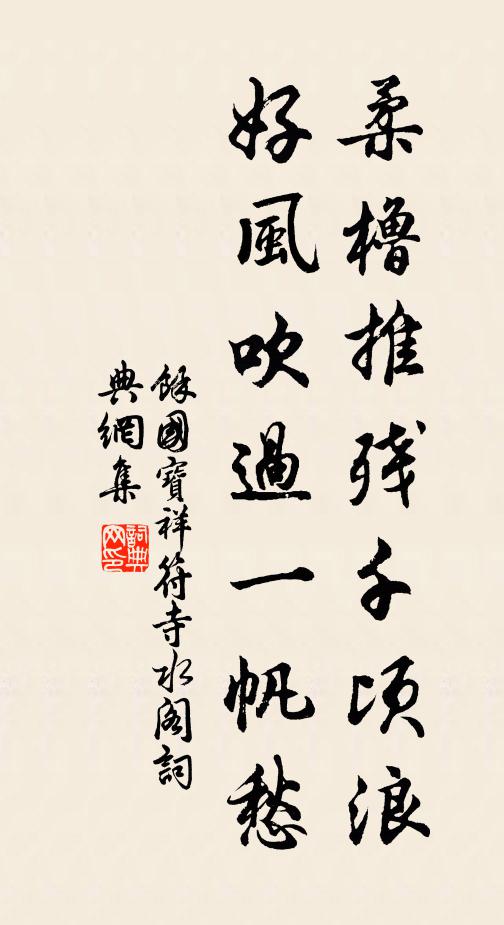 柔櫓推残千頃浪
好風吹過一帆愁
餘國寶祥符寺水閣詞
典網集
詞典
网印